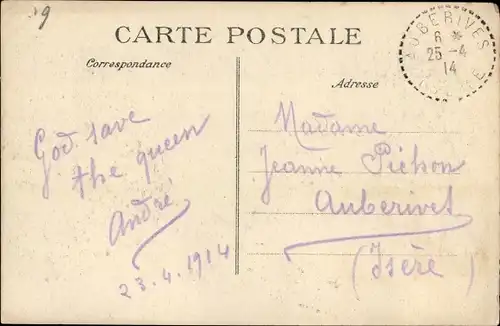 9
CARTE POSTALE
Correspondance
Adresse
AUBERIVES
6 *
25 -4
14
ISÈRE
God save
the queen
André
23.4.1914
Madame
Jeanne Pichon
Auberivet
(Isère)